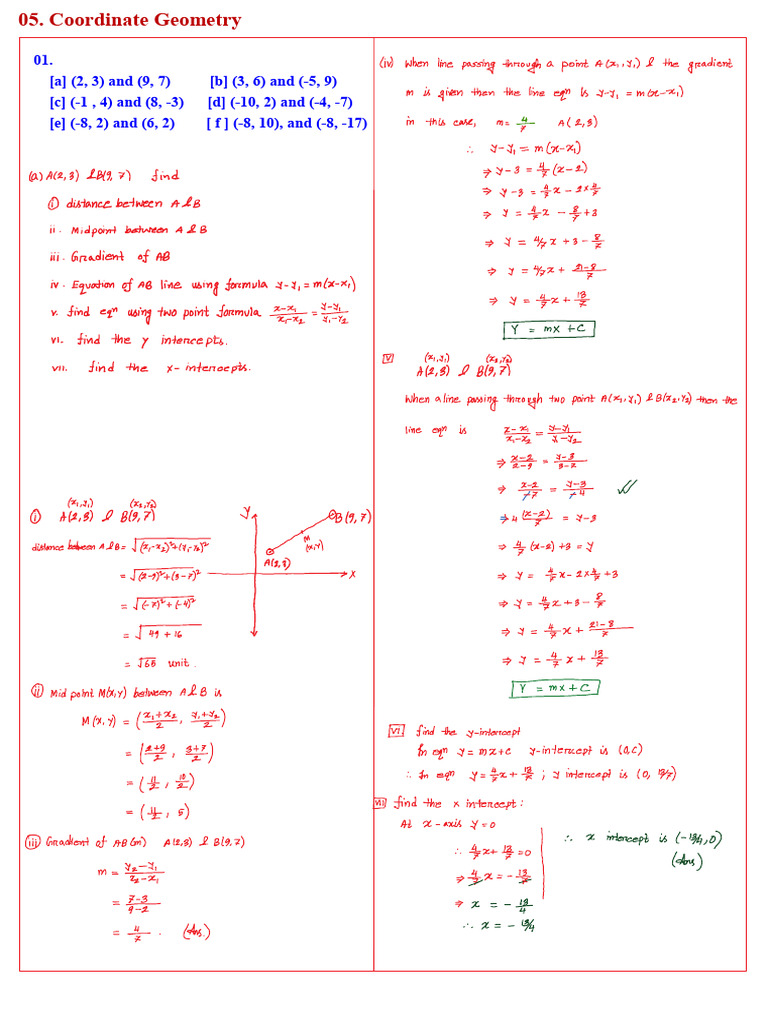 05. Coordinate Geometry
01.
[a] (2, 3) and (9, 7) [b] (3, 6) and (-5, 9)
[c] (-1 , 4) and (8, -3) [d] (-10, 2) and (-4, -7)
[e] (-8, 2) and (6, 2) [ f ] (-8, 10), and (-8, -17)
(a) A(2,3) & B(9,7) find
(i) distance between A & B
ii. Midpoint between A & B
iii. Gradient of AB
iv. Equation of AB line using formula y-y₁=m(x-x₁)
v. find eqn using two point formula (x-x₁)/(x₁-x₂) = (y-y₁)/(y₁-y₂)
vi. find the y intercepts.
vii. find the x-intercepts.
(i) (x₁,y₁) (x₂,y₂)
A(2,3) & B(9,7)
distance between A & B = √((x₁-x₂)²+(y₁-y₂)²)
= √((2-9)²+(3-7)²)
= √((-7)²+(-4)²)
= √(49+16)
= √65 unit.
Y
B(9,7)
M
(x,y)
A(2,3)
X
(ii) Mid point M(x,y) between A & B is
M(x,y) = ((x₁+x₂)/2, (y₁+y₂)/2)
= ((2+9)/2, (3+7)/2)
= (11/2, 10/2)
= (11/2, 5)
(iii) Gradient of AB(m) A(2,3) & B(9,7)
m = (y₂-y₁)/(x₂-x₁)
= (7-3)/(9-2)
= 4/7. (Ans.)
(iv) When line passing through a point A(x₁,y₁) & the gradient
m is given then the line eqn is y-y₁=m(x-x₁)
in this case, m= 4/7 A(2,3)
∴ y-y₁=m(x-x₁)
⇒ y-3=4/7(x-2)
⇒ y-3=4/7x-2×4/7
⇒ y=4/7x-8/7+3
⇒ y=4/7x+3-8/7
⇒ y=4/7x+(21-8)/7
⇒ y=4/7x+13/7
Y = mx+C
V (x₁,y₁) (x₂,y₂)
A(2,3) & B(9,7)
When a line passing through two point A(x₁,y₁) & B(x₂,y₂) then the
line eqn is (x-x₁)/(x₁-x₂) = (y-y₁)/(y₁-y₂)
⇒ (x-2)/(2-9) = (y-3)/(3-7)
⇒ (x-2)/-7 = (y-3)/-4
⇒ 4(x-2)/7 = y-3
⇒ 4/7(x-2)+3=y
⇒ y=4/7x-2×4/7+3
⇒ y=4/7x+3-8/7
⇒ y=4/7x+(21-8)/7
⇒ y=4/7x+13/7
Y = mx+C
VI find the y-intercept
In eqn y=mx+c y-intercept is (0,c)
∴ In eqn y=4/7x+13/7; y intercept is (0, 13/7)
VII find the x intercept:
At x-axis y=0
∴ 4/7x+13/7=0
⇒ 4/7x=-13/7
⇒ x=-13/4
∴ x=-13/4
∴ x intercept is (-13/4,0)
(Ans)